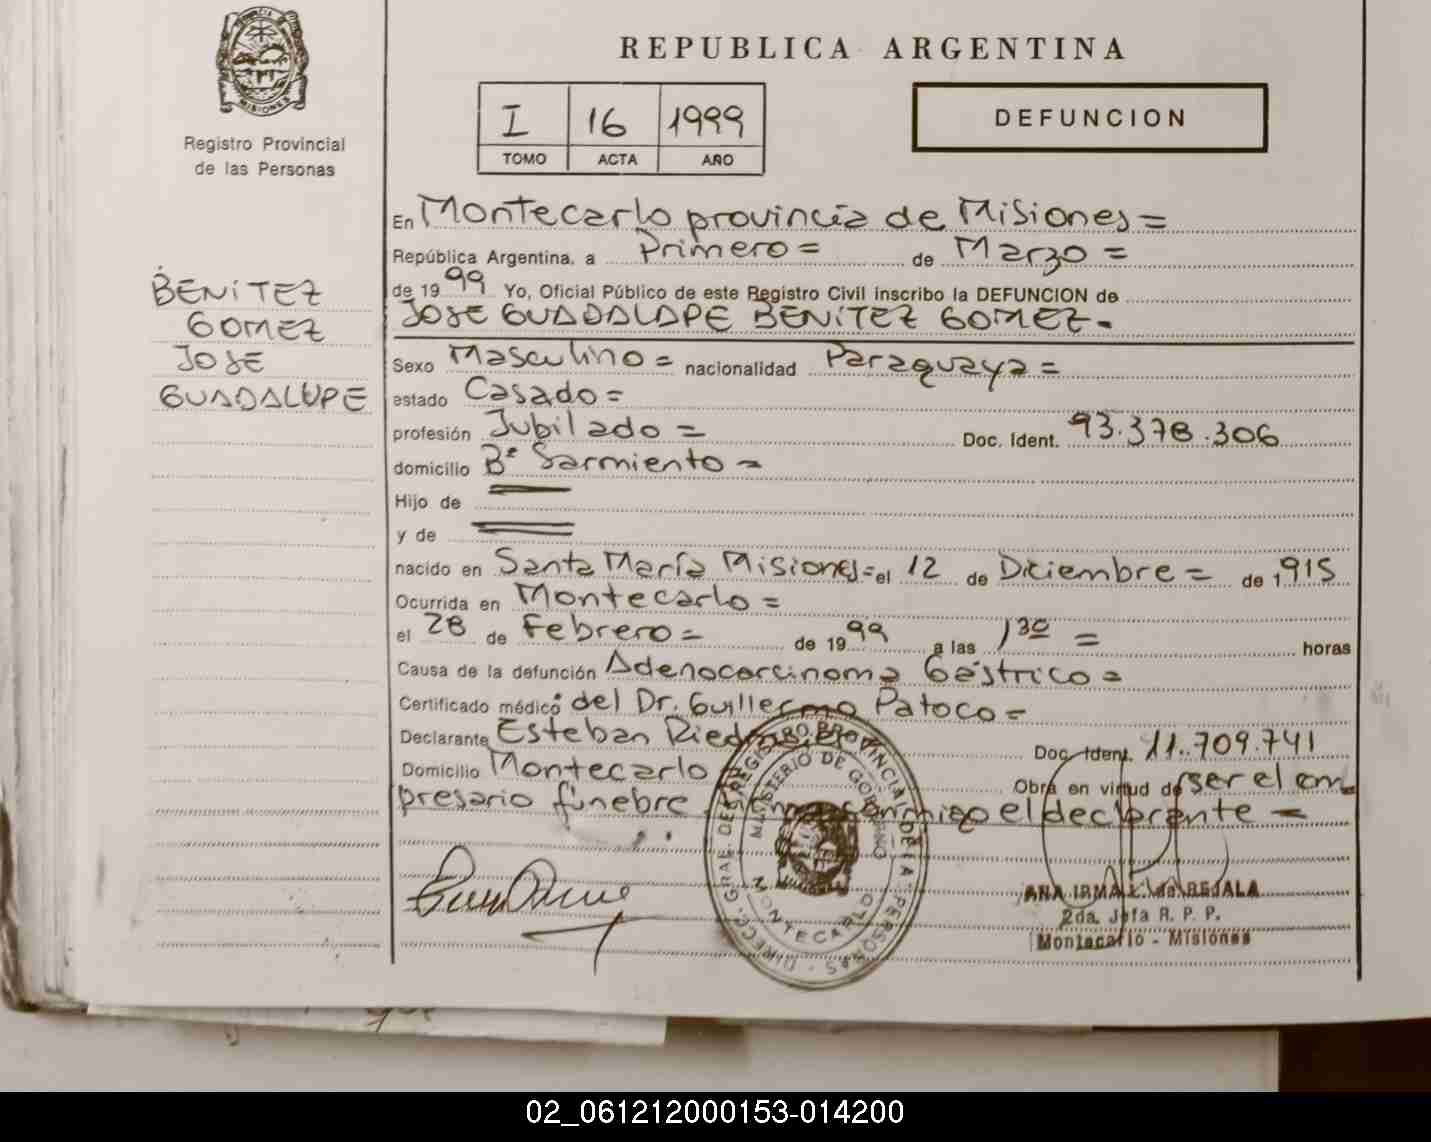 MISIONES
Registro Provincial
de las Personas
REPUBLICA ARGENTINA
I 16 1999
TOMO ACTA AÑO
DEFUNCION
BENITEZ
GOMEZ
JOSE
GUADALUPE
En Montecarlo provincia de Misiones =
República Argentina, a Primero = de Marzo =
de 19 99 Yo, Oficial Público de este Registro Civil inscribo la DEFUNCION de
JOSE GUADALUPE BENITEZ GOMEZ.
Sexo Masculino = nacionalidad Paraguaya =
estado Casado =
profesión Jubilado = Doc. Ident. 93.378.306
domicilio Bº Sarmiento =
Hijo de
y de
nacido en Santa María Misiones = el 12 de Diciembre = de 1915
Ocurrida en Montecarlo =
el 28 de Febrero = de 19 99 a las 1 30 = horas
Causa de la defunción Adenocarcinoma Gástrico =
Certificado médico del Dr. Guillermo Patoco =
Declarante Esteban Doc. Ident. 11.709.741
Domicilio Montecarlo Obra en virtud de ser el em
presario fúnebre conmigo el declarante =
DIRECC. GRAL. DEL REGISTRO PROVINCIAL DE LA PERSONAS
MINISTERIO DE GOBIERNO
MONTECARLO
ANA IRMA de REJALA
2da. Jefa R. P. P.
Montecarlo - Misiones
02_061212000153-014200